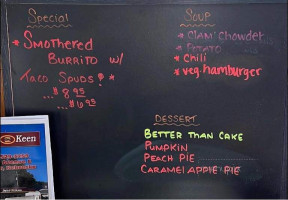 Special
* Smothered
Burrito w/
Taco Spuds! *
...$8.95
...$6.95
Soup
* Clam Chowder
* Potato
* Chili
* veg. hamburger
Dessert
Better Than Cake
Pumpkin
Peach Pie
Caramel Apple Pie
Keen